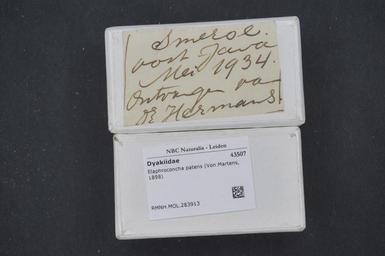 Smeroe.
oost Java
Mei 1934.
Ontvangen van
Dr Hermans
NBC Naturalis - Leiden
Dyakiidae 43507
Elaphroconcha patens (Von Martens,
1898)
RMNH.MOL.283913